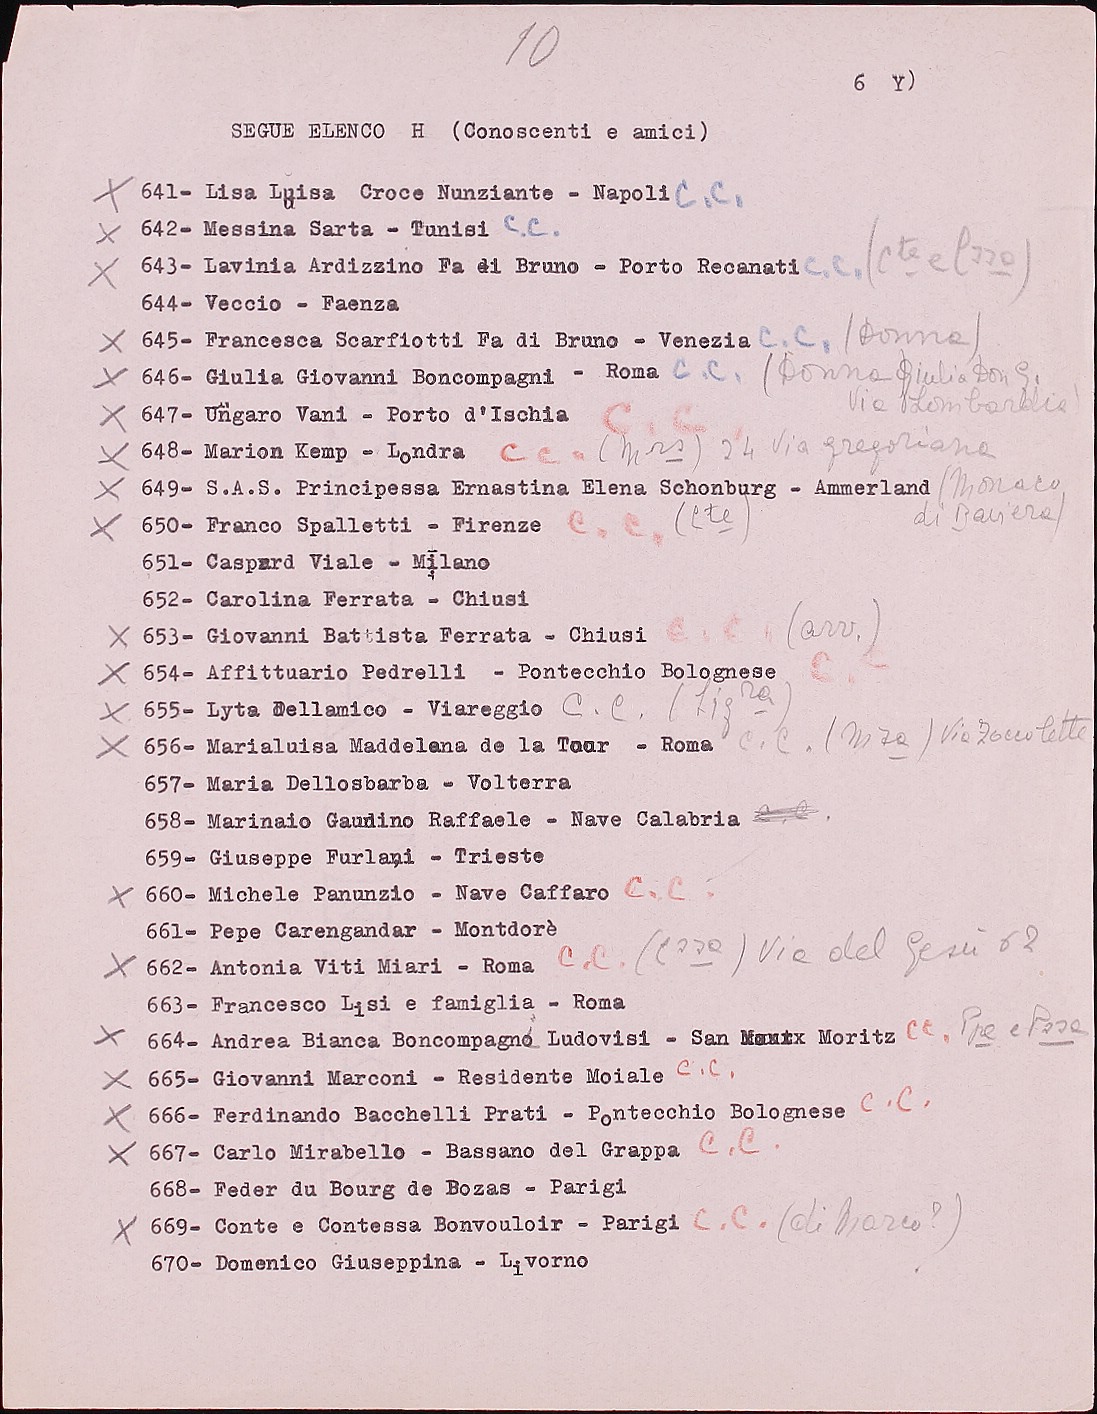 10
6 Y)
SEGUE ELENCO H (Conoscenti e amici)
X 641- Lisa Luisa Croce Nunziante - Napoli C.C.
X 642- Messina Sarta - Tunisi C.C.
X 643- Lavinia Ardizzino Fa di Bruno - Porto Recanati C.C. (Cte e C.ssa)
644- Veccio - Faenza
X 645- Francesca Scarfiotti Fa di Bruno - Venezia C.C. (Donna)
X 646- Giulia Giovanni Boncompagni - Roma C.C. (Donna Giulia Don G.
Via Lombardia)
X 647- Ungaro Vani - Porto d'Ischia C.C.
X 648- Marion Kemp - Londra C C. (Mrs) 24 Via gregoriana
X 649- S.A.S. Principessa Ernastina Elena Schonburg - Ammerland (Monaco
di Baviera)
X 650- Franco Spalletti - Firenze C.C. (Cte)
651- Caspard Viale - Milano
652- Carolina Ferrata - Chiusi
X 653- Giovanni Battista Ferrata - Chiusi C.C. (avv.)
X 654- Affittuario Pedrelli - Pontecchio Bolognese C.C
X 655- Lyta Dellamico - Viareggio C.C. (Sigra)
X 656- Marialuisa Maddelena de la Tour - Roma C.C. (Mza) Via Zoccolette
657- Maria Dellosbarba - Volterra
658- Marinaio Gaudino Raffaele - Nave Calabria
659- Giuseppe Furlani - Trieste
X 660- Michele Panunzio - Nave Caffaro C.C.
661- Pepe Carengandar - Montdorè
X 662- Antonia Viti Miari - Roma C.C. (C.ssa) Via del Gesù 62
663- Francesco Lisi e famiglia - Roma
X 664- Andrea Bianca Boncompagni Ludovisi - San Moritz CC. Ppe e Pssa
X 665- Giovanni Marconi - Residente Moiale C.C.
X 666- Ferdinando Bacchelli Prati - Pontecchio Bolognese C.C.
X 667- Carlo Mirabello - Bassano del Grappa C.C.
668- Feder du Bourg de Bozas - Parigi
X 669- Conte e Contessa Bonvouloir - Parigi C.C. (di Marco?)
670- Domenico Giuseppina - Livorno